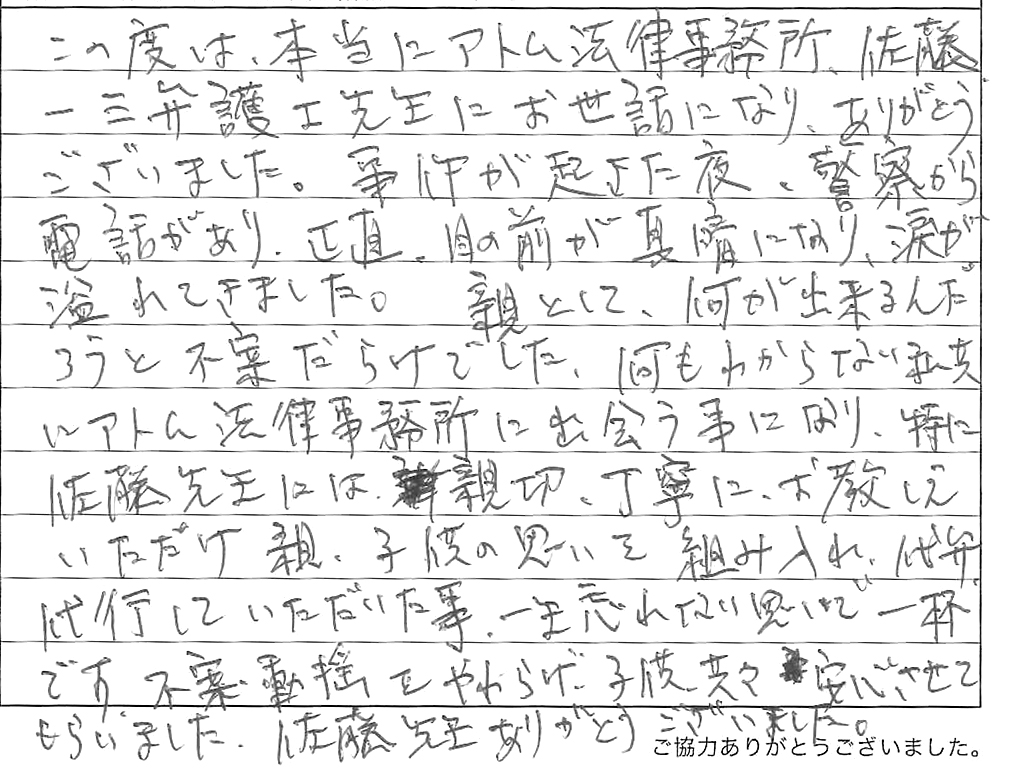 この度は、本当にアトム法律事務所、佐藤
一三弁護士先生にお世話になり、ありがとう
ございました。事件が起きた夜、警察から
電話があり、正直、目の前が真暗になり、涙が
溢れてきました。 親として、何が出来るんだ
ろうと不安だらけでした、何もわからない私共
にアトム法律事務所に出会う事になり、特に
佐藤先生には、親切、丁寧に、お教しえ
いただけ 親、子供の思いを組み入れ、代弁、
代行していただいた事、一生忘れない思いで一杯
です、不安、動揺をやわらげ、子供、共々 安心させて
もらいました、佐藤先生ありがとうございました。
ご協力ありがとうございました。